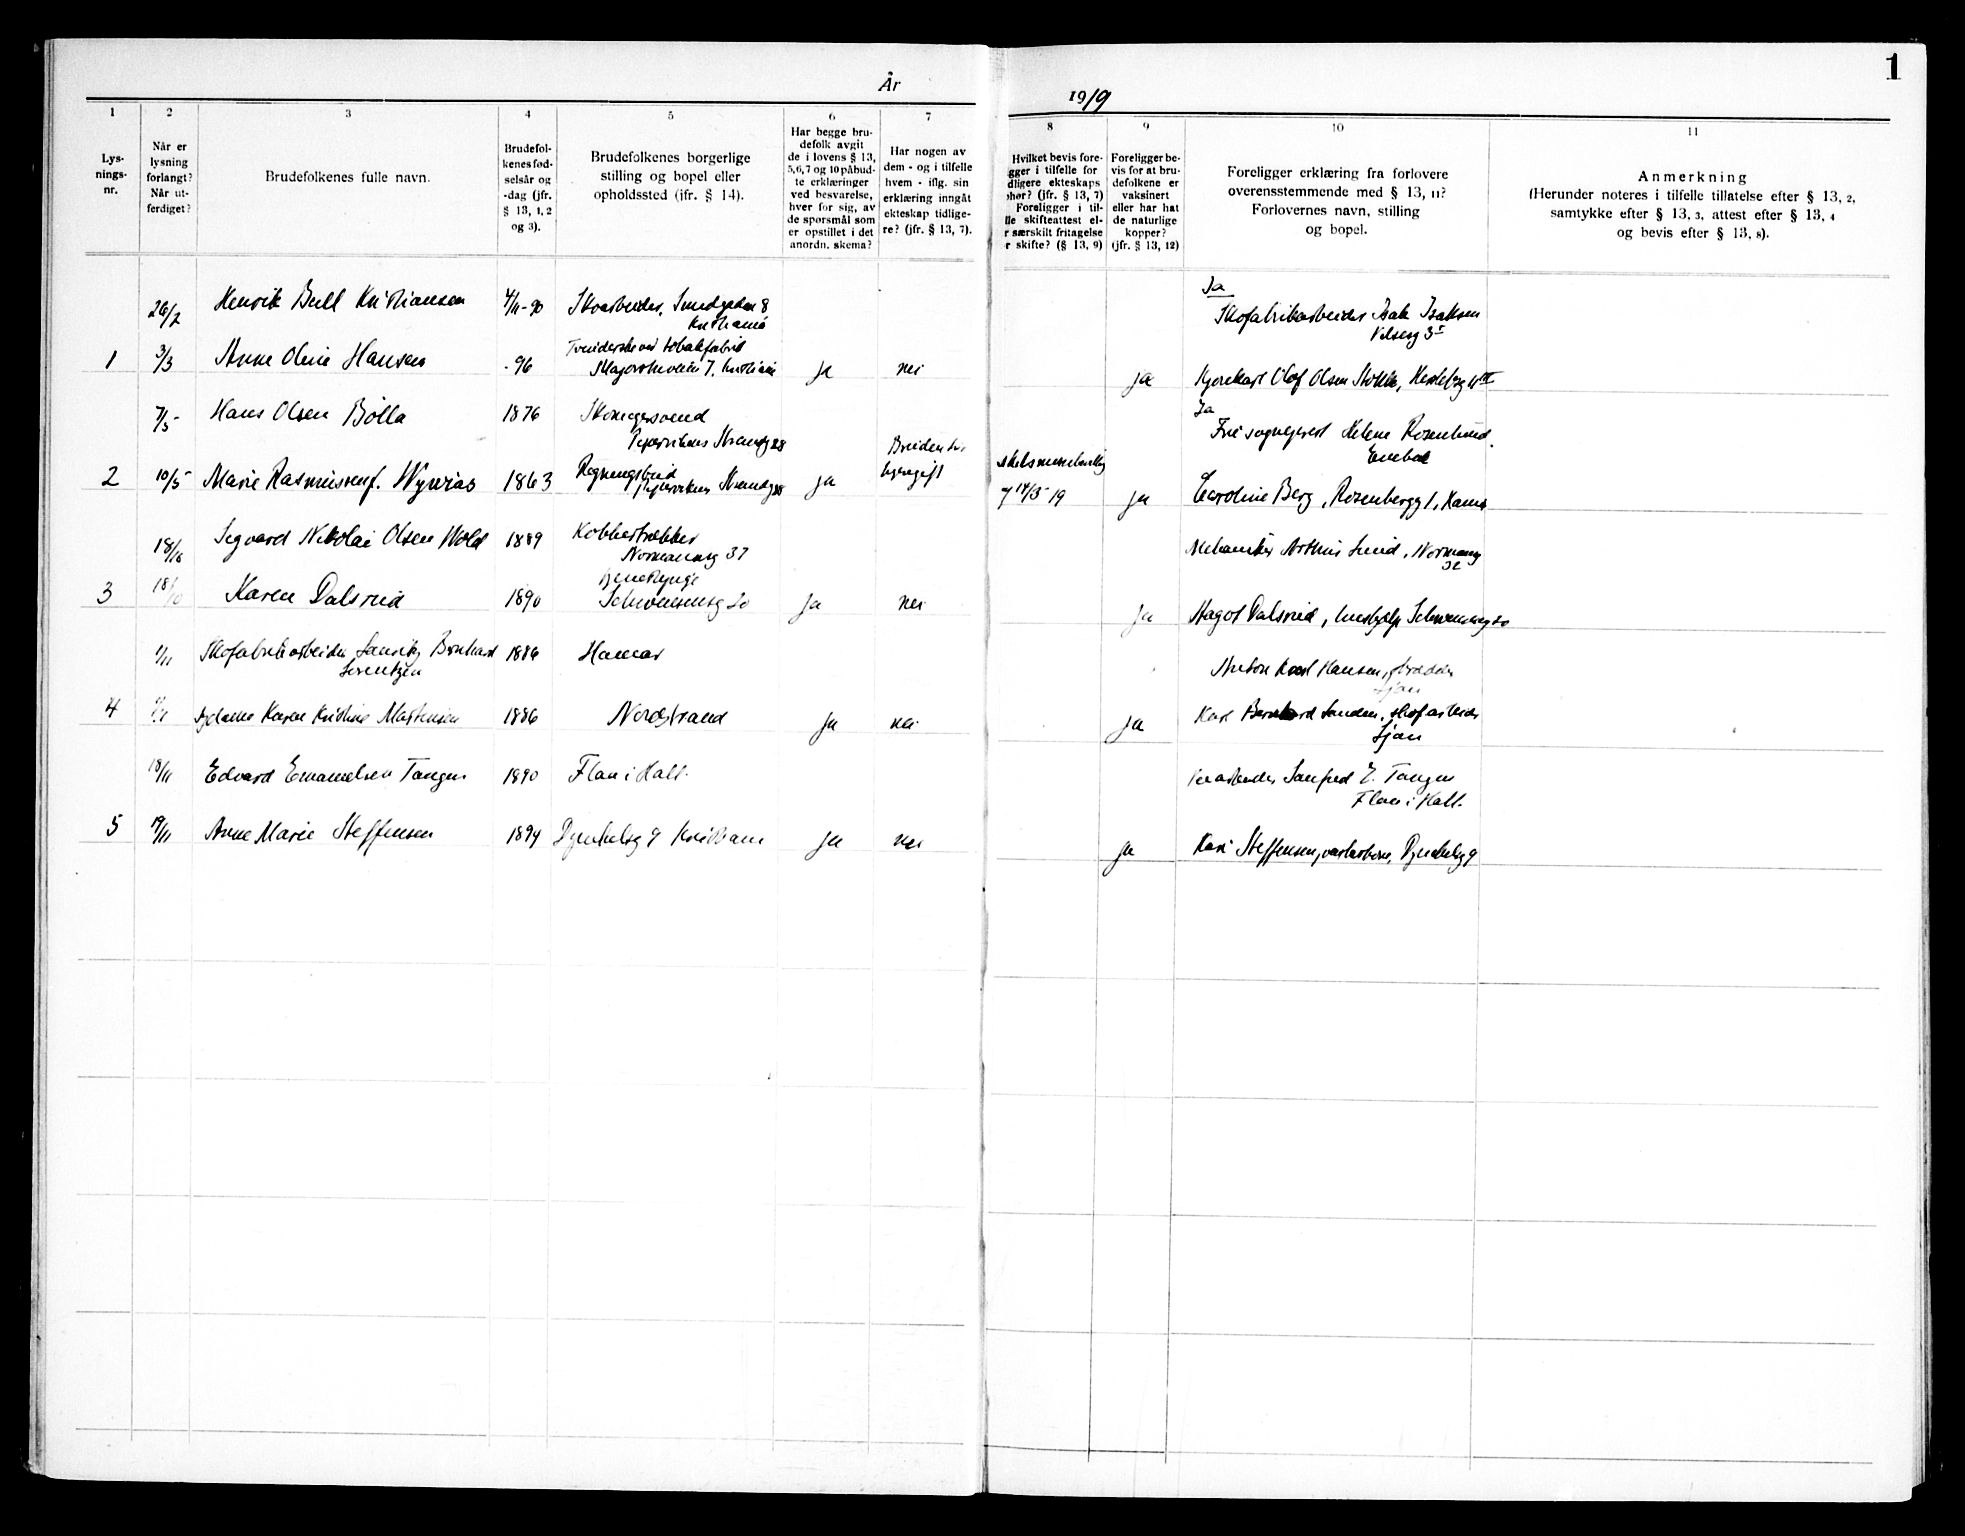 1
År
1919
1
2
3
4
5
6
7
8
9
10
11
Lys-
nings-
nr.
Når er
lysning
forlangt?
Når ut-
ferdiget?
Brudefolkenes fulle navn.
Brudefol-
kenes fød-
selsår og
-dag (jfr.
§ 13, 1, 2
og 3).
Brudefolkenes borgerlige
stilling og bopel eller
opholdssted (jfr. § 14).
Har begge bru-
defolk avgit
de i lovens § 13,
5, 6, 7 og 10 påbud-
te erklæringer
ved besvarelse,
hver for sig, av
de spørsmål som
er opstillet i det
anordn. skema?
Har nogen av
dem - og i tilfelle
hvem - iflg. sin
erklæring inngåt
ekteskap tidlige-
re? (jfr. § 13, 7).
Hvilket bevis fore-
gger i tilfelle for
dligere ekteskaps
phør? (jfr. § 13, 7)
Foreligger i til-
lle skifteattest el-
r særskilt fritagelse
r skifte? (§ 13, 9)
Foreligger be-
vis for at bru-
defolkene er
vaksinert
eller har hat
de naturlige
kopper?
(jfr. § 13, 12)
Foreligger erklæring fra forlovere
overensstemmende med § 13, 11?
Forlovernes navn, stilling
og bopel.
Anmerkning
(Herunder noteres i tilfelle tillatelse efter § 13, 2,
samtykke efter § 13, 3, attest efter § 13, 4
og bevis efter § 13, 8).
26/2 Henrik Bull Kristiansen 4/11-90 Skoarbeider, Smedgaden 8
Kristiania
Ja
Skofabrikarbeider Isak Isaksen
1 3/3 Anne Oline Hansen -96 ja nei ja Olof Olsen
7/5 Hans Olsen Bølla 1876 Skomagersvend
Pipervikens Strandg 28
Ja
Helene Rosenlund
2 10/5 Marie Rasmussen f. 1863 Pipervikens Strandg 28 ja 14/5-19 ja Caroline Berg, Rosenbergg 1, Hamar
18/10 Segvard Nikolai Olsen Wold 1889 Kobbertrækker
Normannsg 37
Mekaniker Arthur Lund, Normannsg
3 18/10 Karen Dalsrud 1890 Schwensensg 20 ja nei ja Hagot Dalsrud, Schwensensg 20
1/11 Skofabrikarbeider Bernhard
Lorentzen 1886 Hamar
Anton Karl Hansen,
Ljan
4 Karen Kristine Martinsen 1886 Nordstrand ja nei ja Karl Bernhard Sanden, skofarbeider
Ljan
18/11 Edvard Emanuelsen Tangen 1890 Flan i Holt.
Sanfred E. Tangen
Flan i Holt.
5 19/11 Anne Marie Steffensen 1894 Dynekelsg 9 Kristiania ja nei ja Kari Steffensen, Dynekelsg 9